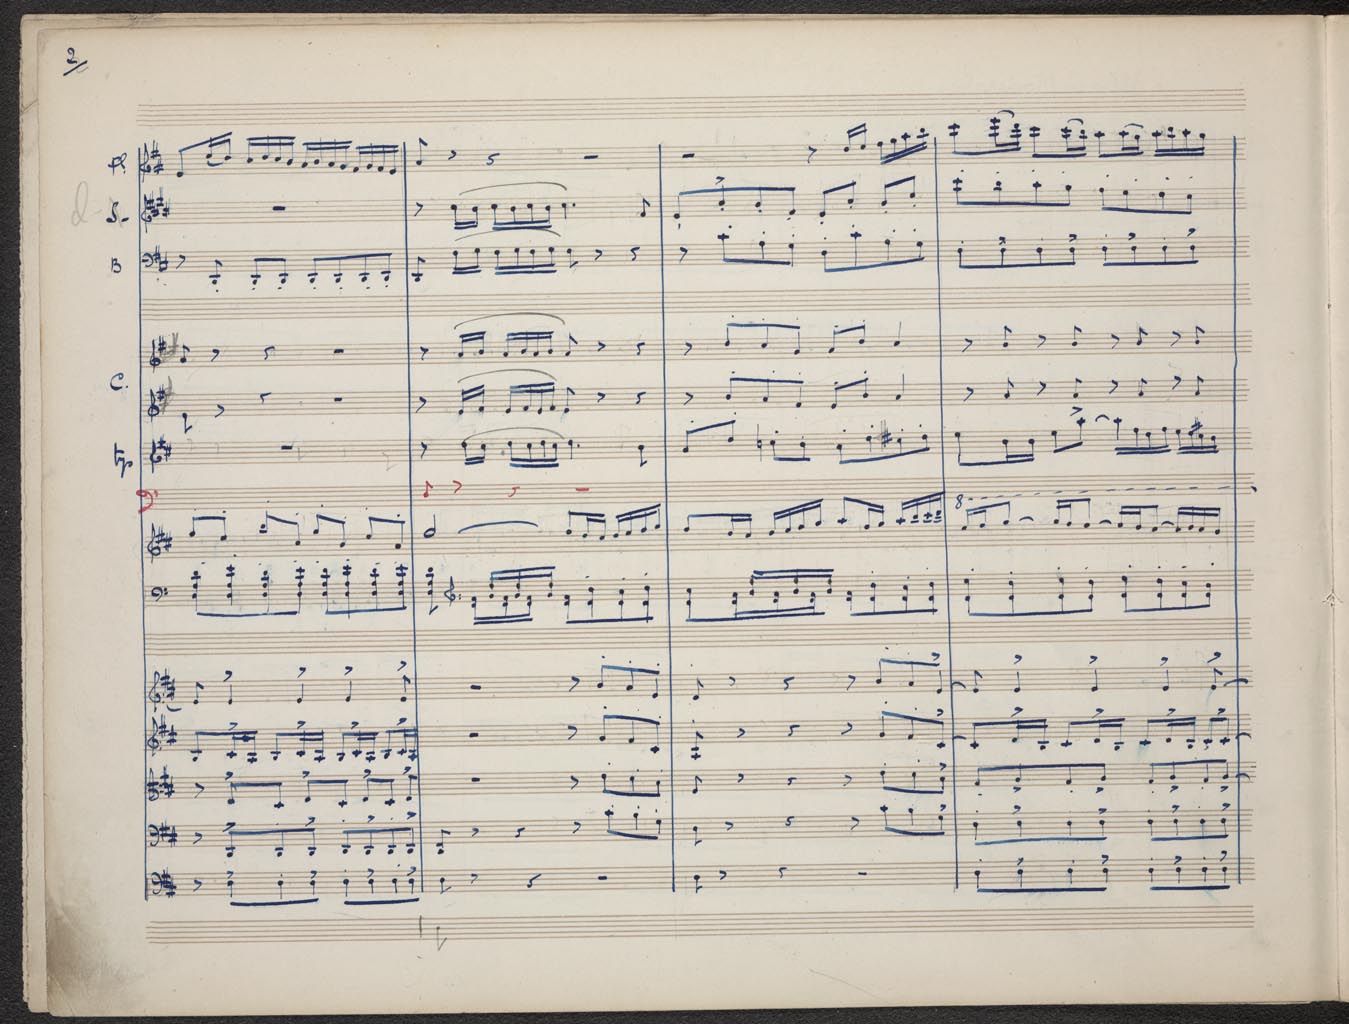 2
Fl
S.
B
C.
tp
8